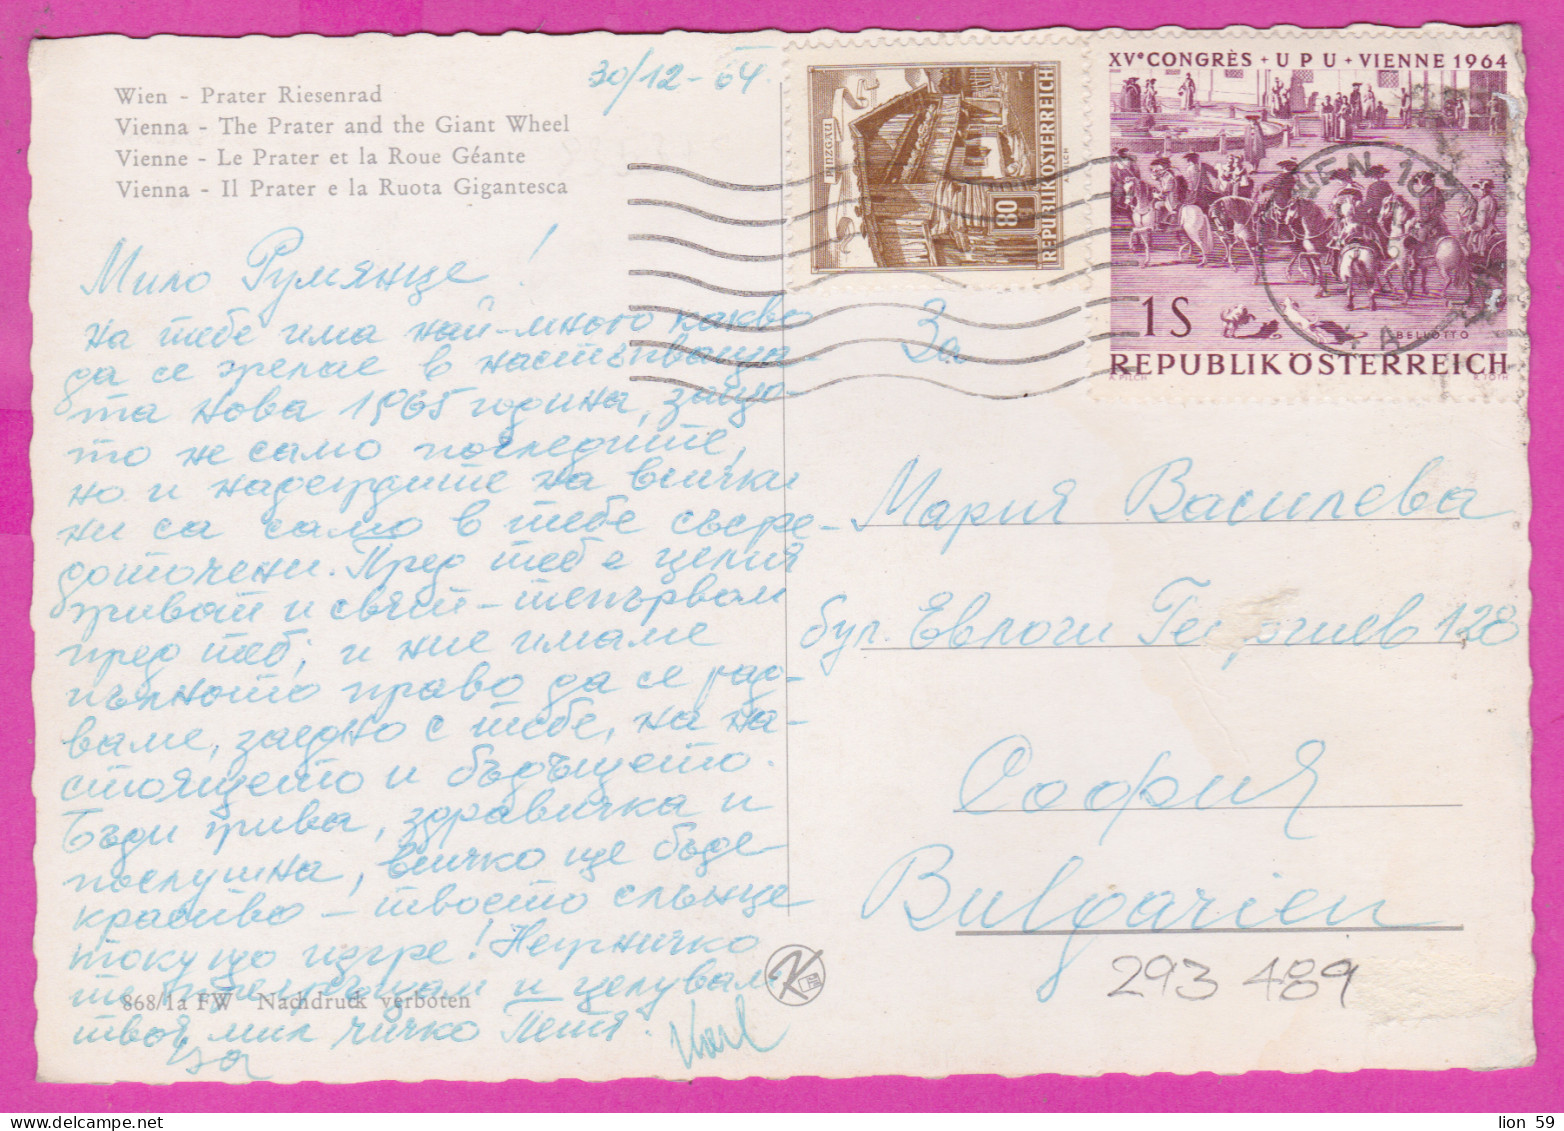 Wien - Prater Riesenrad
Vienna - The Prater and the Giant Wheel
Vienne - Le Prater et la Roue Géante
Vienna - Il Prater e la Ruota Gigantesca
30/12-64
PINZGAU
80
REPUBLIK ÖSTERREICH
PILCH
XVᵉ CONGRÈS + UPU + VIENNE 1964
WIEN 10
1S
BELLOTTO
REPUBLIK ÖSTERREICH
A. PILCH K. TOTH
Мило Румянце!
на тебе има най-много какво
да се желае в настъпваща-
та нова 1965 година, защо-
то не само последите,
но и надеждите на всички
ни са само в тебе съсре-
доточени. Пред теб е целия
живот и свят - тепървом
пред теб, и ние имаме
пълното право да се рад-
ваме, заедно с тебе, на на-
стоящето и бъдещето.
Бъди жива, здравичка и
послушна, всичко ще бъде
красиво - твоето слънце
токущо изгре! Нежничко
те прегръщам и целувам
твоя мил чичко Петя.
Karl
За
Мария Василева
бул. Евлоги Георгиев 128
София
Bulgarien
293 489
868/1a FW Nachdruck verboten
K
lion 59